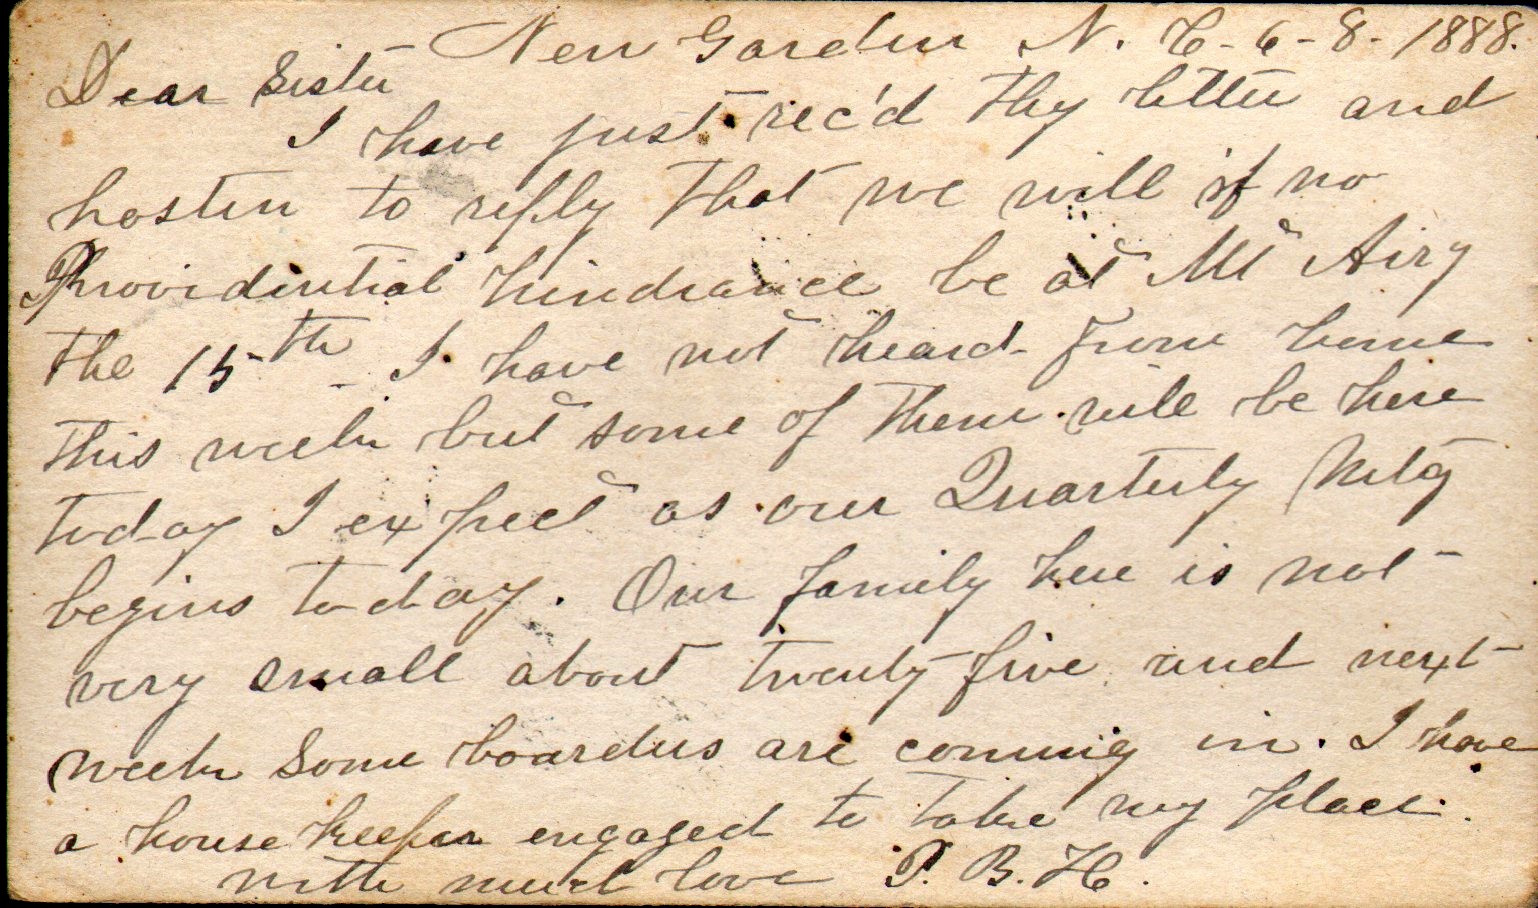 New Garden N. C - 6 - 8 - 1888.
Dear Sister
I have just rec'd thy letter and
hasten to reply that we will if no
Providential hindrance be at Mt Airy
the 15th - I have not heard from home
this week but some of them will be here
today I expect as our Quarterly Mtg
begins today. Our family here is not
very small about twenty five and next
week some boarders are coming in. I have
a house keeper engaged to take my place.
with much love P. B. H.